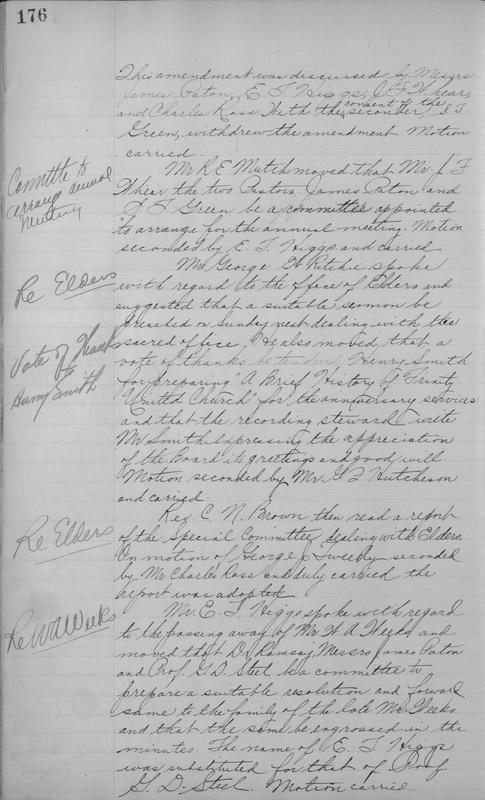 176
This amendment was discussed by Messrs
James Paton, E. T. Higgs, J. F. Whear,
and Charles Ross. With the consent of the
seconder, S T
Green, withdrew the amendment Motion
carried.
Committe to
arrange annual
Meeting
Mr R E Mutch moved that Mr. J. F
Whear the two Pastors James Paton and
S T Green be a committee appointed
to arrange for the annual meeting. Motion
seconded by E. T. Higgs and carried
Re Elders
Mr. George W Ritchie spoke
with regard to the office of Elders and
suggested that a suitable sermon be
preached on Sunday next dealing with the
sacred office. He also moved that a
Vote of Thanks
to
Henry Smith
vote of thanks be tendered Henry Smith
for preparing "A Brief History of Trinity
United Church" for the anniversary services
and that the recording steward write
Mr Smith expressing the appreciation
of the Board its greetings and good will
Motion seconded by Mr. Hutcheson
and carried.
Re Elders
Rev C. N. Brown then read a report
of the Special Committee dealing with Elders
On motion of George J Tweedy seconded
by Mr Charles Ross and duly carried the
report was adopted
Re W A Weeks
Mr. E. T. Higgs spoke with regard
to the passing away of Mr W. A Weeks and
moved that Dr Ramsay, Messrs James Paton
and Prof. G. D. Steel be a committee to
prepare a suitable resolution and forward
same to the family of the late Mr. Weeks,
and that the same be engrossed in the
minutes. The name of E. T Higgs
was substituted for that of Prof
G. D. Steel. Motion carried.